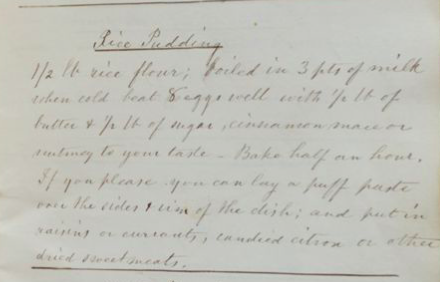 Rice Pudding
1/2 lb rice flour; boiled in 3 pts of milk
when cold beat 8 eggs well with 1/2 lb of
butter & 1/2 lb of sugar, cinnamon, mace or
nutmeg to your taste – Bake half an hour.
If you please you can lay a puff paste
over the sides & rim of the dish; and put in
raisins or currants, candied citron or other
dried sweetmeats.